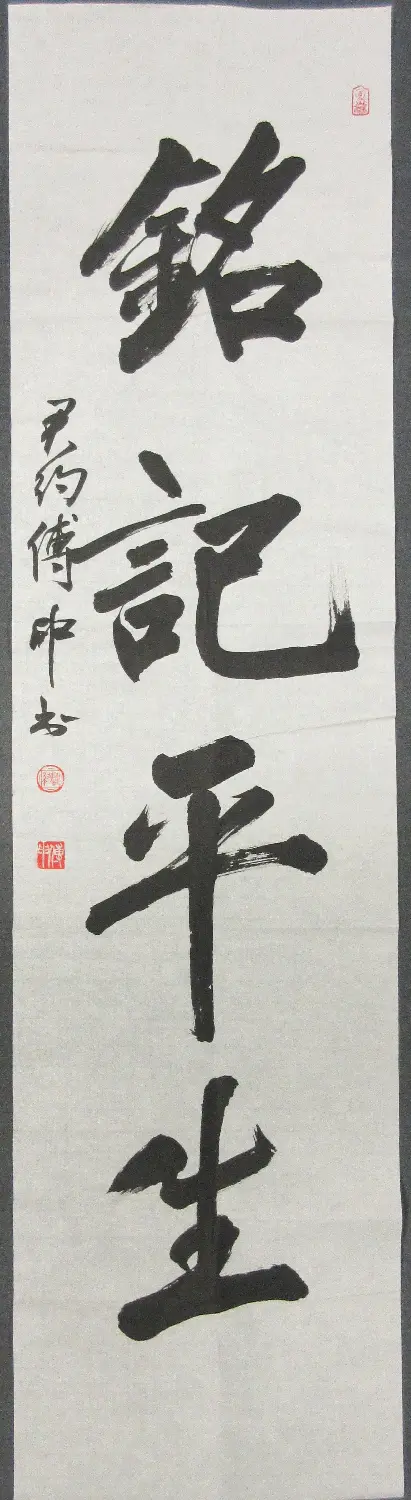 銘記平生
君約傅申書